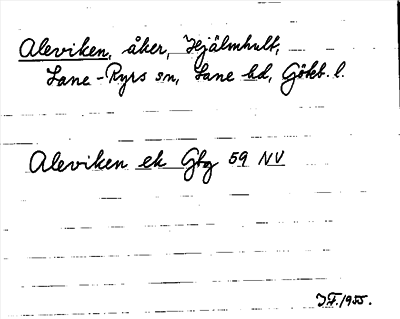 Aleviken, åker, Hjälmhult,
Lane-Ryrs sn, Lane hd, Göteb. l.
Aleviken ek Gbg 59 NV
1955.